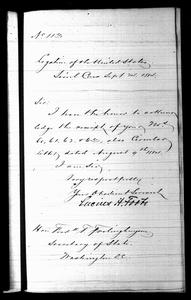 No 113
Legation of the United States
Seoul Corea Sept 2d, 1884.
Sir:
I have the honor to acknow
ledge the receipt of your Nos
60, 61, 62, & 63, also Circular
letter, dated August 9th 1884.
I am Sir,
Very respectfully
Your Obedient Servant
Lucius H. Foote
Hon. Fred'k T. Frelinghuysen
Secretary of State
Washington D.C.